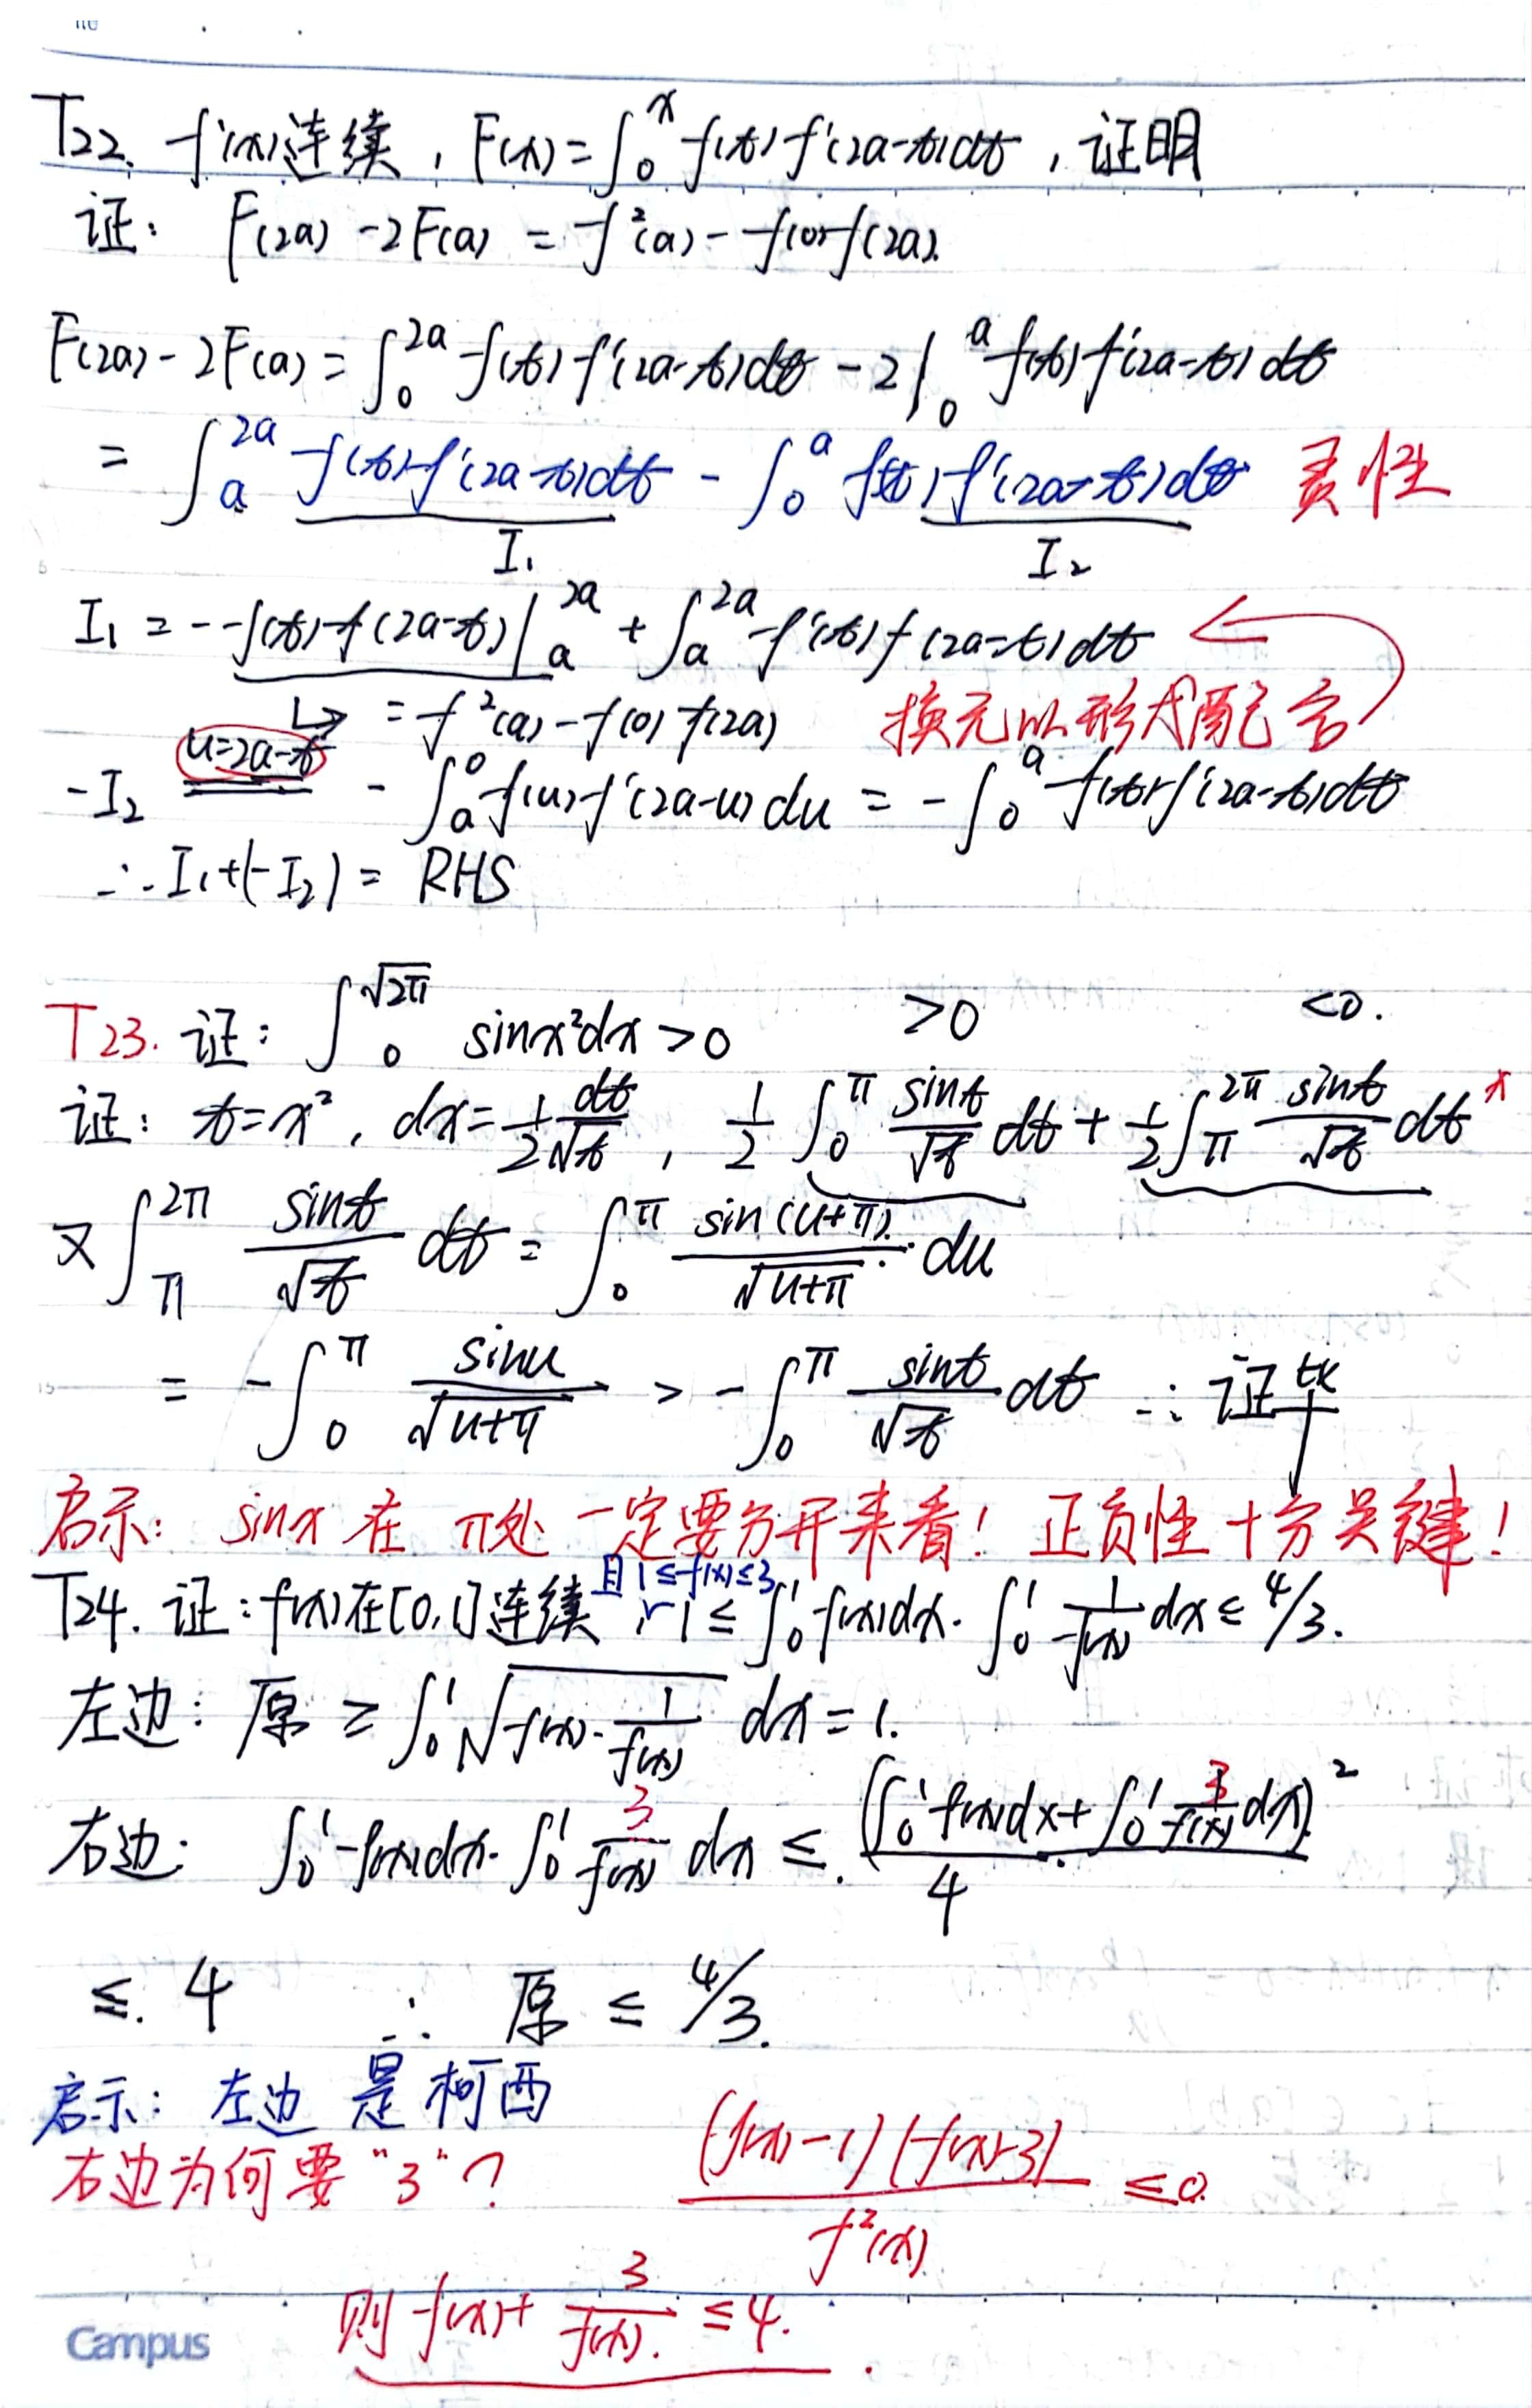 T22. f'(x)连续，F(x)=∫₀ˣ f(t)f'(2a-t)dt，证明
证：F(2a)-2F(a)=f²(a)-f(0)f(2a).
F(2a)-2F(a)=∫₀^{2a} f(t)f'(2a-t)dt-2∫₀^a f(t)f'(2a-t)dt
=∫_a^{2a} f(t)f'(2a-t)dt-∫₀^a f(t)f'(2a-t)dt 灵性
I₁ I₂
I₁=-f(t)f(2a-t)|_a^{2a}+∫_a^{2a} f'(t)f(2a-t)dt
↳ =f²(a)-f(0)f(2a) 换元以形式配合
-I₂ u=2a-t -∫_a^0 f(u)f'(2a-u)du=-∫₀^a f(t)f'(2a-t)dt
∴ I₁+(-I₂)=RHS
T23. 证：∫₀^{√2π} sinx²dx>0 >0 <0.
证：t=x²，dx=½ dt/√t，½∫₀^π sint/√t dt+½∫_π^{2π} sint/√t dt
又∫_π^{2π} sint/√t dt=∫₀^π sin(u+π)/√(u+π)·du
=-∫₀^π sinu/√(u+π) >-∫₀^π sint/√t dt ∴证毕
启示：sinx在π处一定要分开来看！正负性十分关键！
T24. 证：f(x)在[0,1]连续 且1≤f(x)≤3，1≤∫₀¹f(x)dx·∫₀¹ 1/f(x) dx≤4/3.
左边：原≥∫₀¹√(f(x)·1/f(x)) dx=1.
右边：∫₀¹f(x)dx·∫₀¹ 3/f(x) dx≤(∫₀¹f(x)dx+∫₀¹ 3/f(x) dx)²/4
≤4 ∴ 原≤4/3.
启示：左边是柯西
右边为何要"3"？ (f(x)-1)(f(x)-3)/f²(x) ≤0.
则f(x)+3/f(x)≤4.
Campus